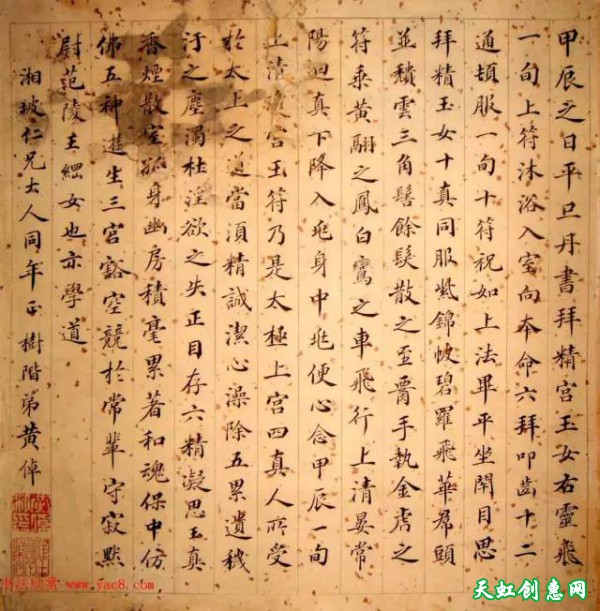 甲辰之日平旦丹書拜精宮玉女右靈飛
一旬上符沐浴入室向本命六拜叩齒十二
通頓服一旬十符祝如上法畢平坐閉目思
拜精玉女十真同服紫錦帔碧羅飛華帬頭
並穨雲三角髻餘髮散之至胷手執金虎之
符乘黃翮之鳳白鸞之車飛行上清晏常
陽迴真下降入兆身中兆便心念甲辰一旬
上清宮玉符乃是太極上宮四真人所受
於太上之道當須精誠潔心澡除五累遺穢
汙之塵濁杜淫欲之失正目存六精凝思玉真
香煙散室孤身幽房積毫累著和魂保中仿
佛五神遊生三宮豁空競於常輩守寂默
尉范陵王綱女也亦學道
湘坡仁兄大人同年正樹階弟黃倬
www.yac8.com
天虹创惠网